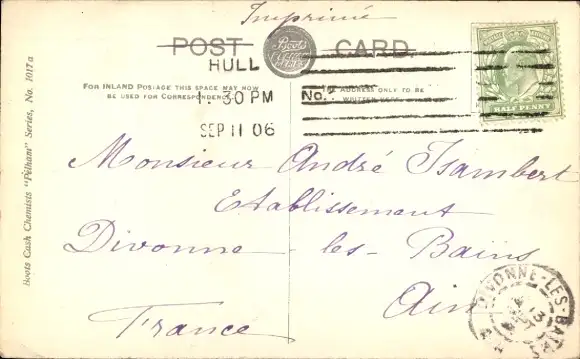 Imprimé
POST CARD.
Boots
HULL
1. 30 PM
SEP 11 06
No.
FOR INLAND POSTAGE THIS SPACE MAY NOW
BE USED FOR CORRESPONDENCE
ADDRESS ONLY TO BE
HALF PENNY
Monsieur André Isambert
Etablissement
Divonne-les-Bains
Ain
France
DIVONNE-LES-BAINS
13
Boots Cash Chemists "Pelham" Series, No. 1017a